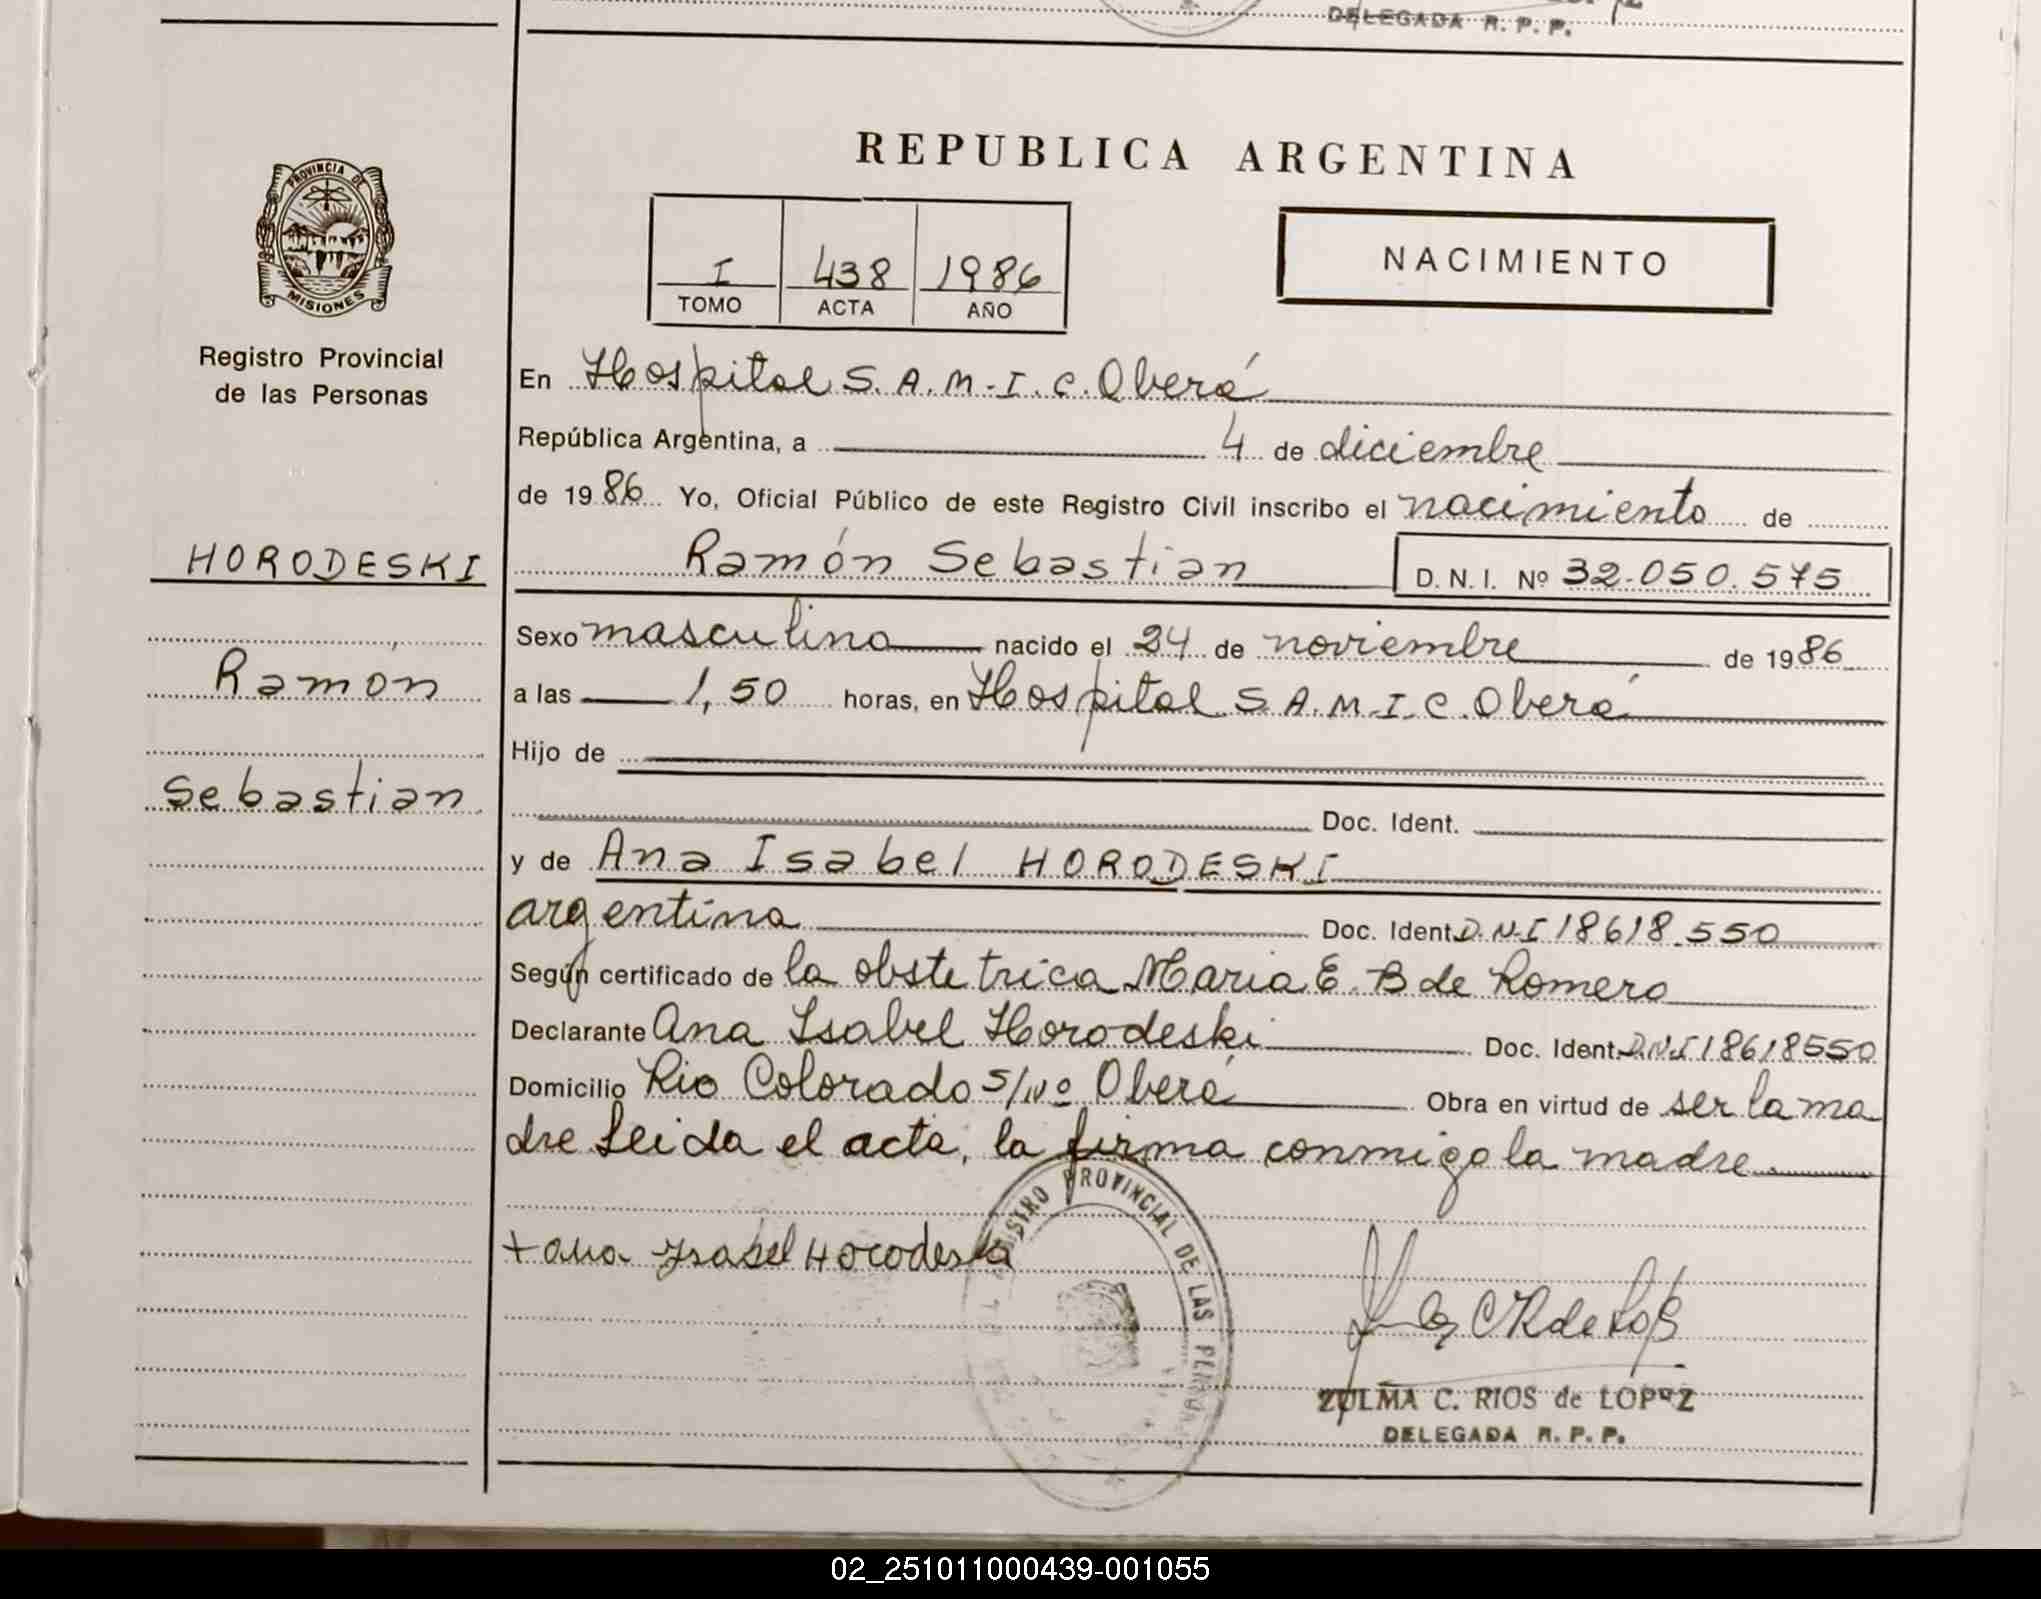 DELEGADA R. P. P.
REPUBLICA ARGENTINA
PROVINCIA DE
MISIONES
Registro Provincial
de las Personas
I 438 1986
TOMO ACTA AÑO
NACIMIENTO
HORODESKI
Ramón
Sebastian
En Hospital S.A.M.I.C. Oberá
República Argentina, a 4 de diciembre
de 1986 Yo, Oficial Público de este Registro Civil inscribo el nacimiento de
Ramón Sebastian D. N. I. Nº 32.050.575
Sexo masculino nacido el 24 de noviembre de 1986
a las 1,50 horas, en Hospital S.A.M.I.C. Oberá
Hijo de
Doc. Ident.
y de Ana Isabel HORODESKI
argentina Doc. Ident. D.N.I 18618.550
Según certificado de la obstetrica Maria E. B de Romero
Declarante Ana Isabel Horodeski Doc. Ident. D.N.I 18618550
Domicilio Rio Colorado s/Nº Oberá Obra en virtud de ser la ma
dre Leida el acta, la firma conmigo la madre.
+ Ana Ysabel Horodeski
REGISTRO PROVINCIAL DE LAS PERSONAS
ZULMA C. RIOS de LOPEZ
DELEGADA R. P. P.
02_251011000439-001055